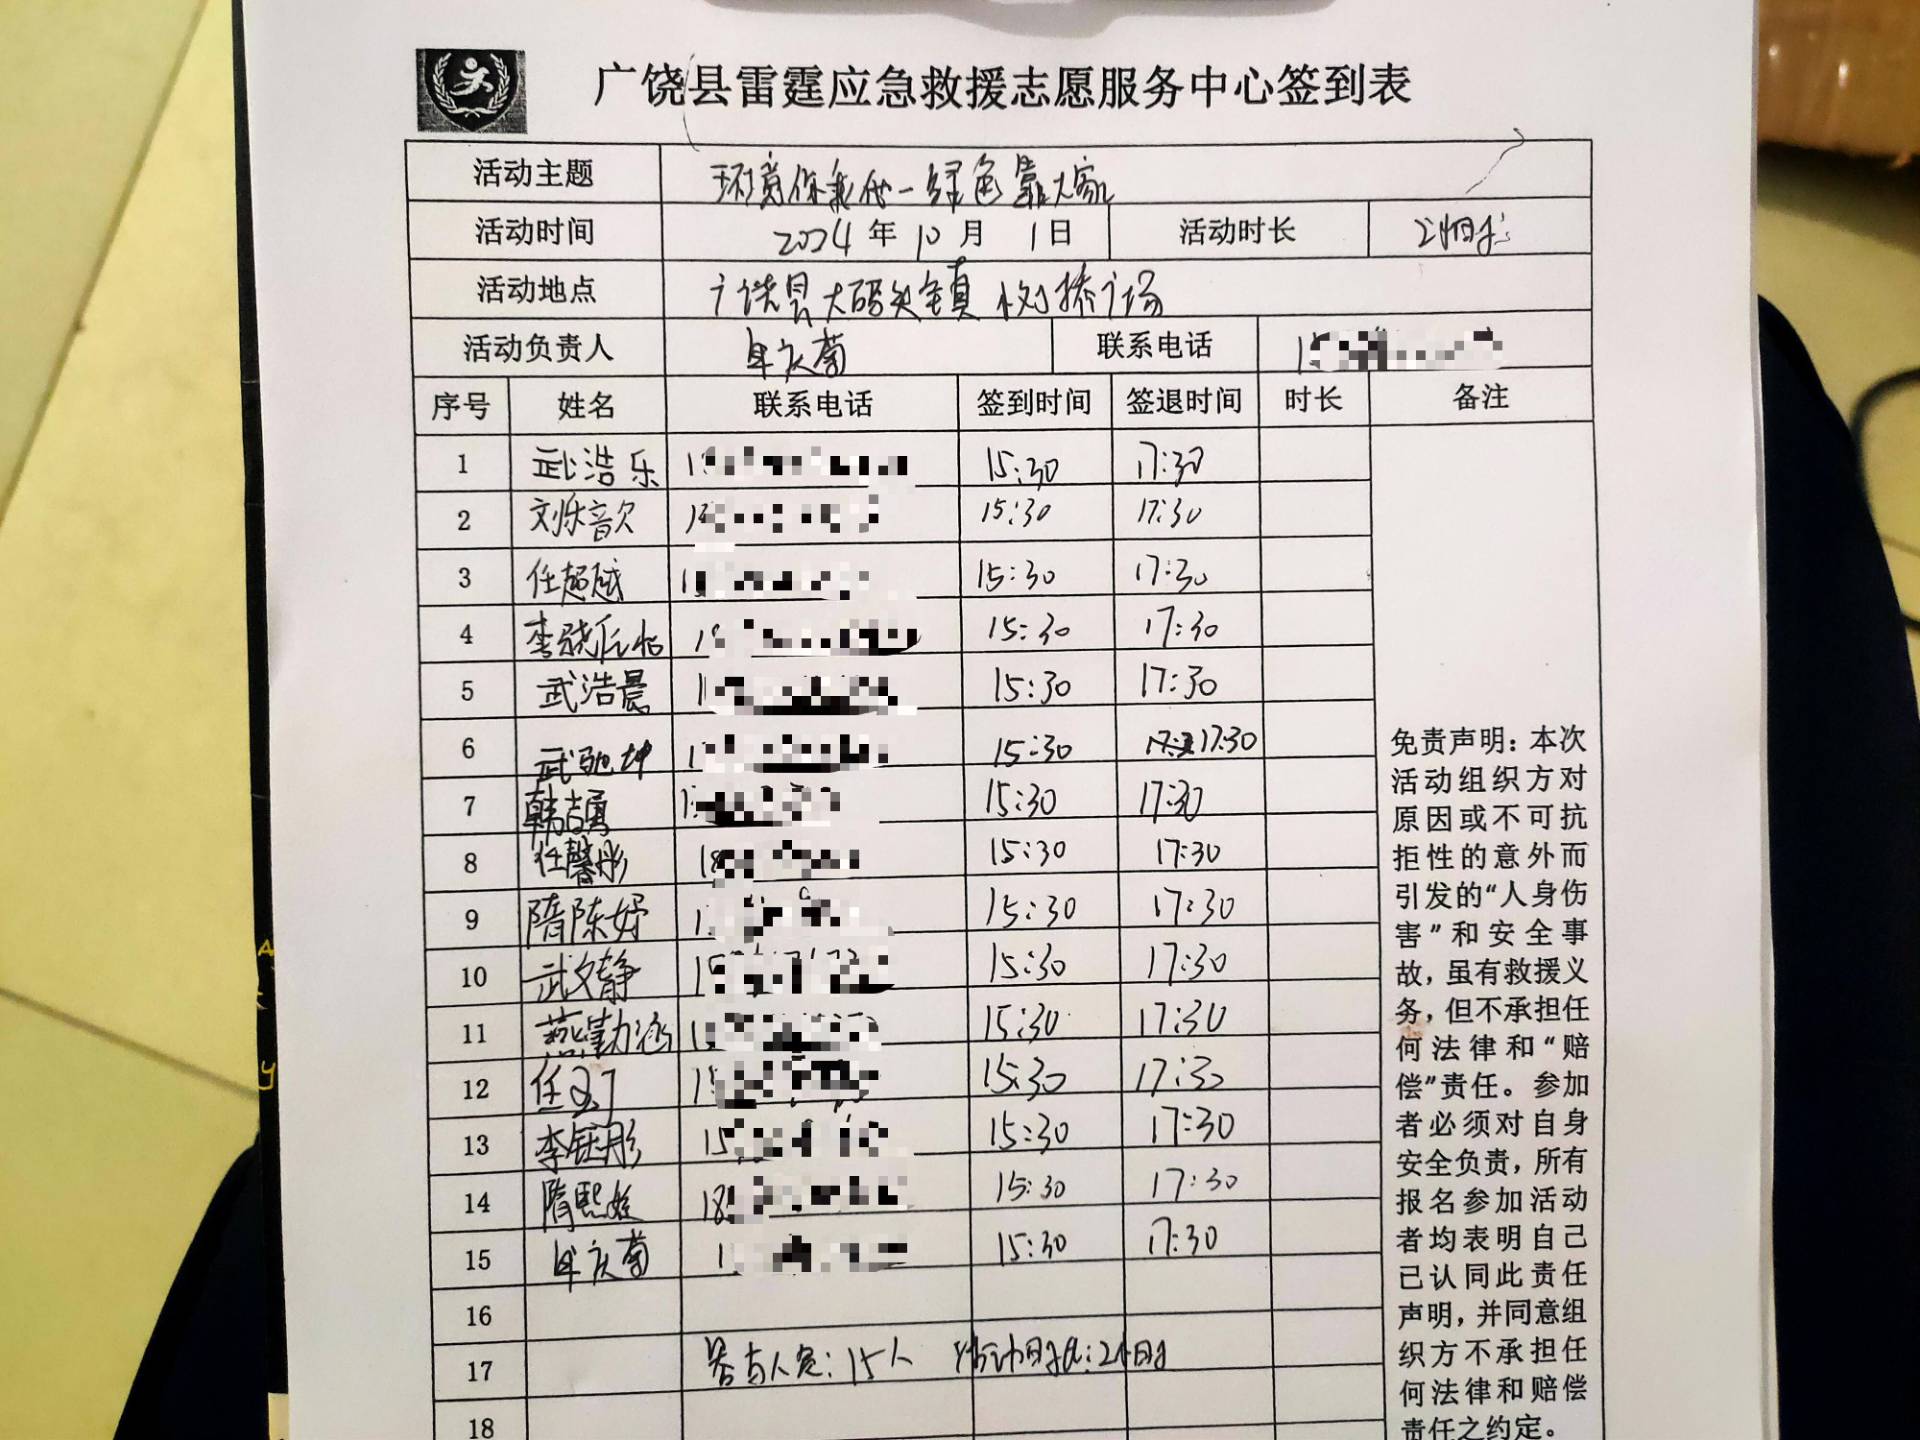 广饶县雷霆应急救援志愿服务中心签到表
活动主题 环境你我他一绿色靠大家
活动时间 2024年10月1日 活动时长 2小时
活动地点 广饶县大码头镇 广场
活动负责人 联系电话 1
序号 姓名 联系电话 签到时间 签退时间 时长 备注
1 武浩乐 1 15:30 17:30
2 刘乐音 1 15:30 17:30
3 任超越 1 15:30 17:30
4 李 1 15:30 17:30
5 武浩晨 1 15:30 17:30
6 武驰坤 1 15:30 17:30
7 韩吉勇 1 15:30 17:30
8 任馨彤 18 15:30 17:30
9 隋陈妤 1 15:30 17:30
10 武文静 15 15:30 17:30
11 燕勤涵 1 15:30 17:30
12 任 15:30 17:30
13 李钰彤 15 15:30 17:30
14 隋熙 18 15:30 17:30
15 1 15:30 17:30
16
17 参与人员:15人 活动时长:2小时
18
免责声明：本次
活动组织方对
原因或不可抗
拒性的意外而
引发的“人身伤
害”和安全事
故，虽有救援义
务，但不承担任
何法律和“赔
偿”责任。参加
者必须对自身
安全负责，所有
报名参加活动
者均表明自己
已认同此责任
声明，并同意组
织方不承担任
何法律和赔偿
责任之约定。